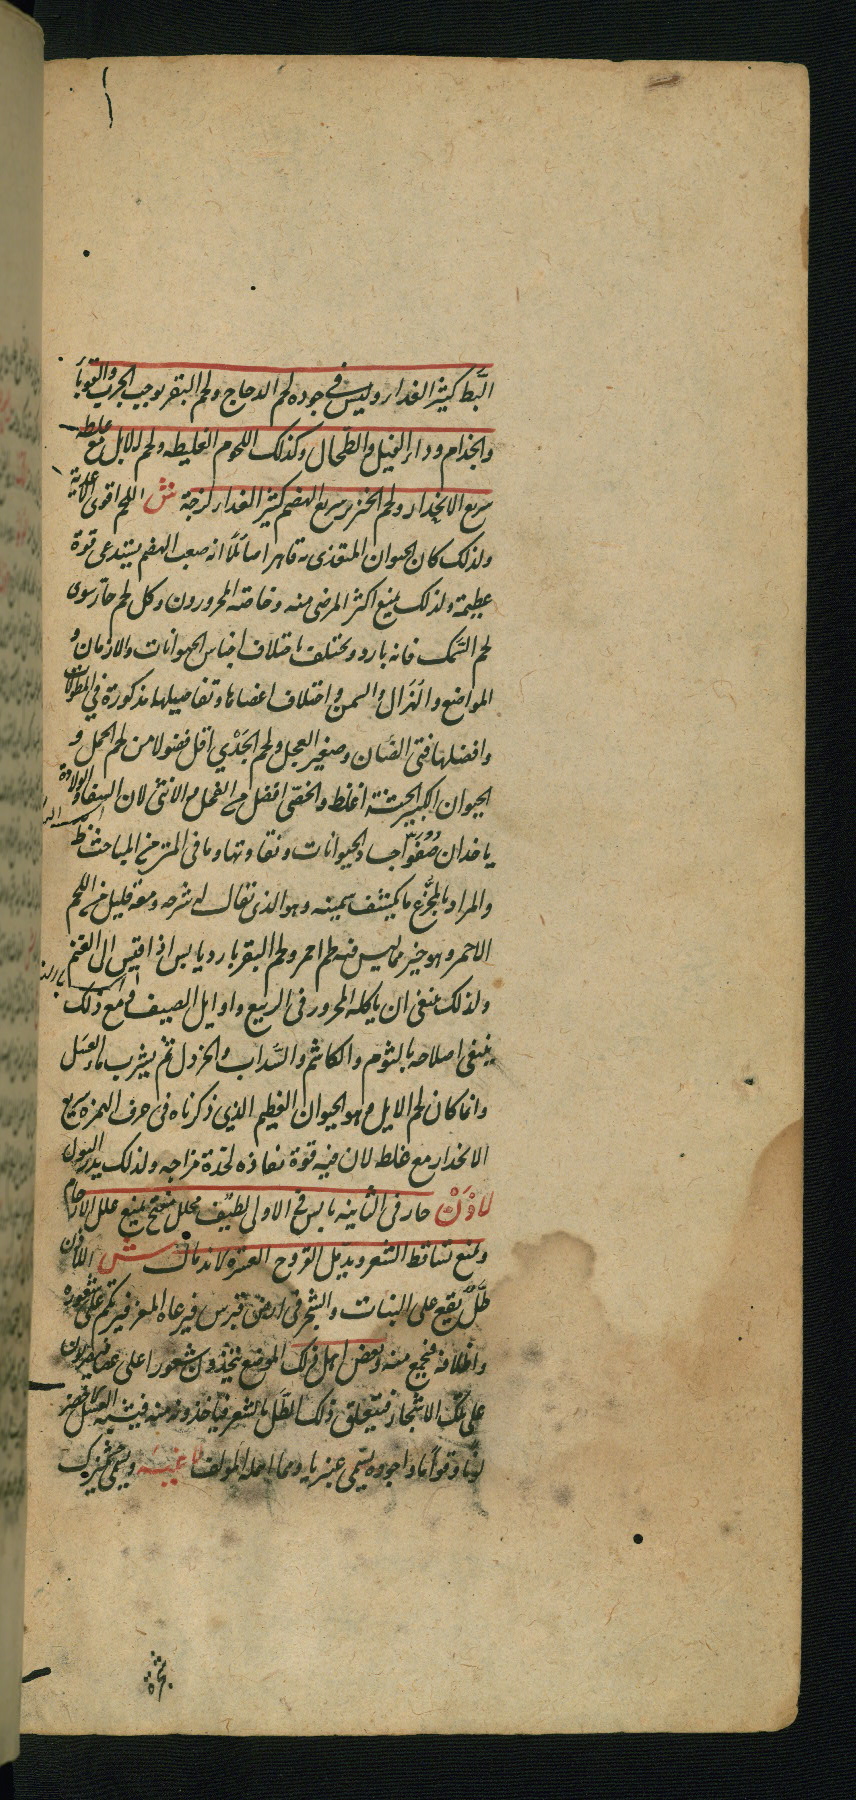 البط كثير الغذاء وليس في جوده لحم الدجاج ولحم البقر يوجب الجرب والقوبا
والجذام وداء الفيل والطحال وكذلك اللحوم الغليظه ولحم الابل مع غلظه
سريع الانحدار ولحم الخنزير سريع الهضم كثير الغذاء لزجة ش اللحم اقوى الاغذية
ولذلك كان الحيوان المتغذى به قاهرا صائلا انه صعب الهضم يستدعى قوة
عظيمة ولذلك يمنع اكثر المرضى منه وخاصته المحرورون وكل لحم حار سوى
لحم السمك فانه بارد ويختلف باختلاف اجناس الحيوانات والازمان و
المواضع والهزال والسمن واختلاف اعضائها وتفاصيلها مذكورة في المطولات
وافضلها فتى الضان وصغير العجل ولحم الجدي اقل فضولا من لحم الحمل و
الحيوان الكبير الجثته اغلظ والخصى افضل من الفحل من الانثى لان السفاد والولادة
ياخذان صفو اجساد الحيوانات ونقاوتها وما في المتن من المباحث ظ
والمراد بالمجزع ما يكتنف سمينه وهو الذى يقال له شرحه ومعه قليل من اللحم
الاحمر وهو خير مما ليس فيه لحم احمر ولحم البقر بارد يابس اذا اقيس الى الغنم
ولذلك ينبغى ان ياكله المحرور فى الربيع واوايل الصيف مع ذلك
ينبغى اصلاحه بالثوم والكاشم والسداب والخردل ثم يشرب ماء العسل
وانما كان لحم الايل وهو الحيوان العظيم الذي ذكرناه فى حرف الهمزه سريع
الانحدار مع غلظ لان فيه قوة نفاذه لحدة مزاجه ولذلك يدر البول
لاذن حار فى الثانيه يابس في الاولى لطيف محلل مفتح يمنع علل الارحام
ويمنع تساقط الشعر ويدمل القروح العسرة الاندمال ش اللاذن
طل يقع على النبات والشجر فى ارض قبرس فيرعاه المعز فيرتكم على شعوره
واظلافه فيجمع منه وبعض اهل ذلك الموضع يتخذون شعورا على
على تلك الاشجار فيتعلق ذلك الطل بالشعر فياخذونه منه فيشبه العسل
لونا وقواما واجوده يسمى عنبريا ومما اهمله المولف لاغيه ويسمى
شجرة